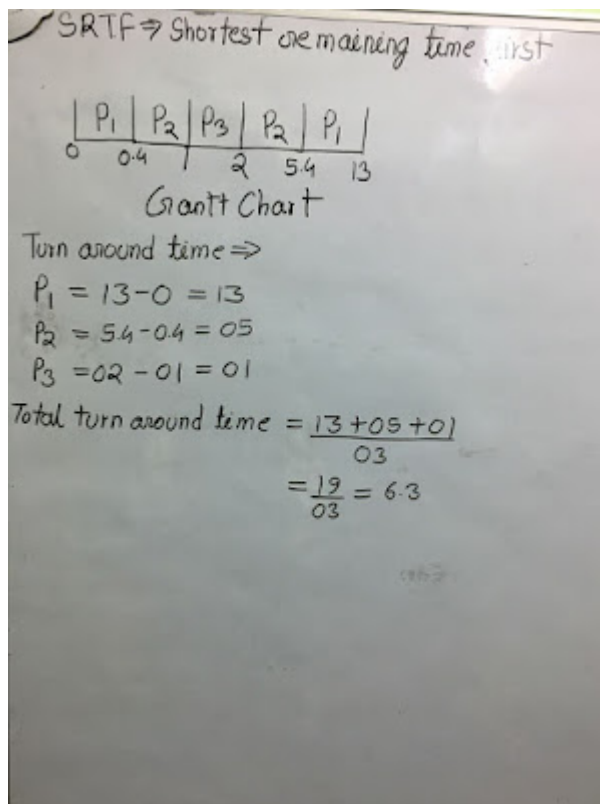 SRTF⇒ Shortest remaining time first
P1 P2 P3 P2 P1
0 0.4 1 2 5.4 13
Gantt Chart
Turn around time ⇒
P1 = 13-0 = 13
P2 = 5.4-0.4 = 05
P3 =02 - 01 = 01
Total turn around time = 13+05+01
03
= 19/03 = 6.3